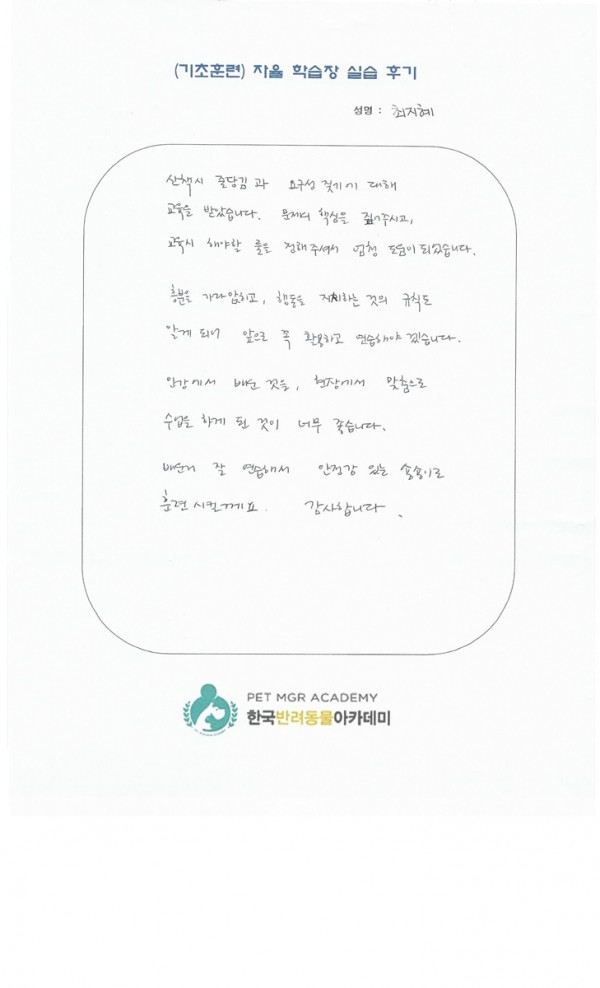 (기초훈련) 자율 학습장 실습 후기
성명 : 최지혜
산책시 줄당김 과 요구성 짖기에 대해
교육을 받았습니다. 문제의 핵심을 짚어주시고,
교육시 해야할 룰을 정해주셔서 엄청 도움이 되었습니다.
흥분을 가라앉히고, 행동을 지시하는 것의 규칙도
알게 되어 앞으로 꼭 활용하고 연습해야겠습니다.
인강에서 배운 것을, 현장에서 맞춤으로
수업을 하게 된 것이 너무 좋습니다.
배운거 잘 연습해서 안정감 있는 송송이로
훈련시킬께요. 감사합니다.
PET MGR ACADEMY
한국반려동물아카데미